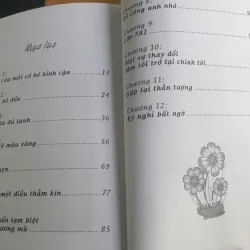 Mục lục
1:
của một cô bé kính cận 13
hè đến 23
33
màu vàng 45
56
một điều thầm kín 77
tạm biệt
mù 85
Chương 8:
cổng anh nhỏ
Chương 9:
Lớp 7A1
Chương 10:
sự thay đổi
tôi trở lại chính tôi
Chương 11:
Gặp lại thần tượng
Chương 12:
Kỳ nghỉ bất ngờ